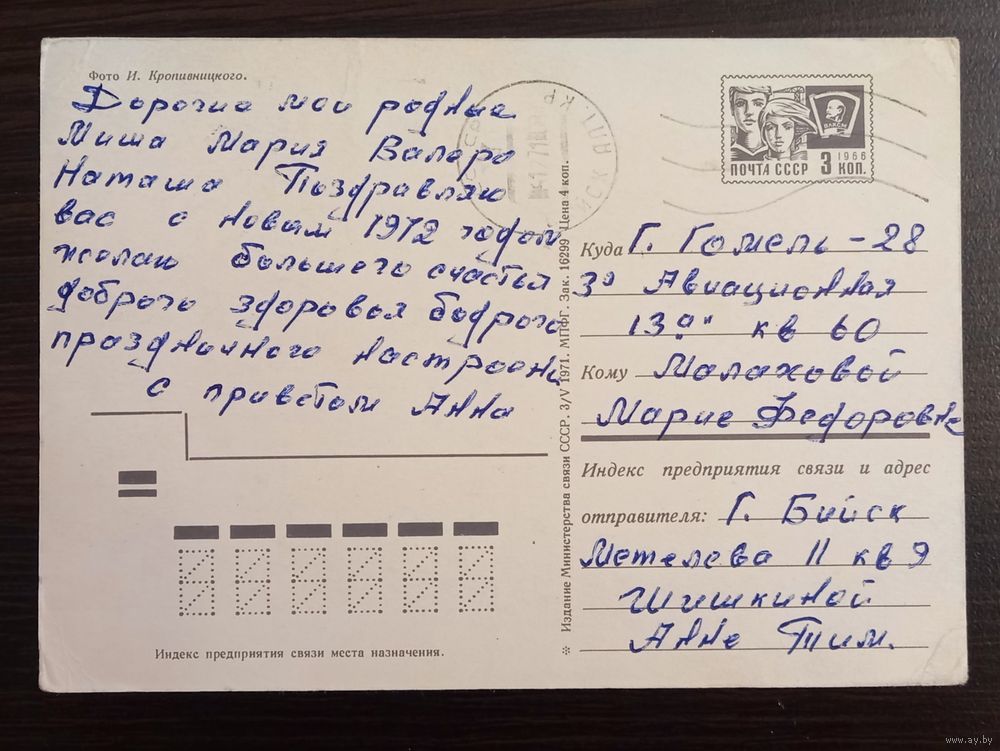 Фото И. Кропивницкого.
Дорогие мои родные
Миша Мария Валера
Наташа Поздравляю
вас с новым 1972 годом
желаю большего счастья
доброго здоровья бодрого
праздничного настроения
с приветом Анна
ПОЧТА СССР
3 КОП.
1966
ВЛКСМ
Куда Г. Гомель - 28
3й Авиационная
13 "а" кв 60
Кому Малаховой
Марие Федоровне
Индекс предприятия связи и адрес
отправителя: Г. Бийск
Метелева 11 кв 9
Шишкиной
Анне Тим.
Издание Министерства связи СССР. 3/V 1971. МПФГ. Зак. 16299 Цена 4 коп.
Индекс предприятия связи места назначения.
www.ay.by